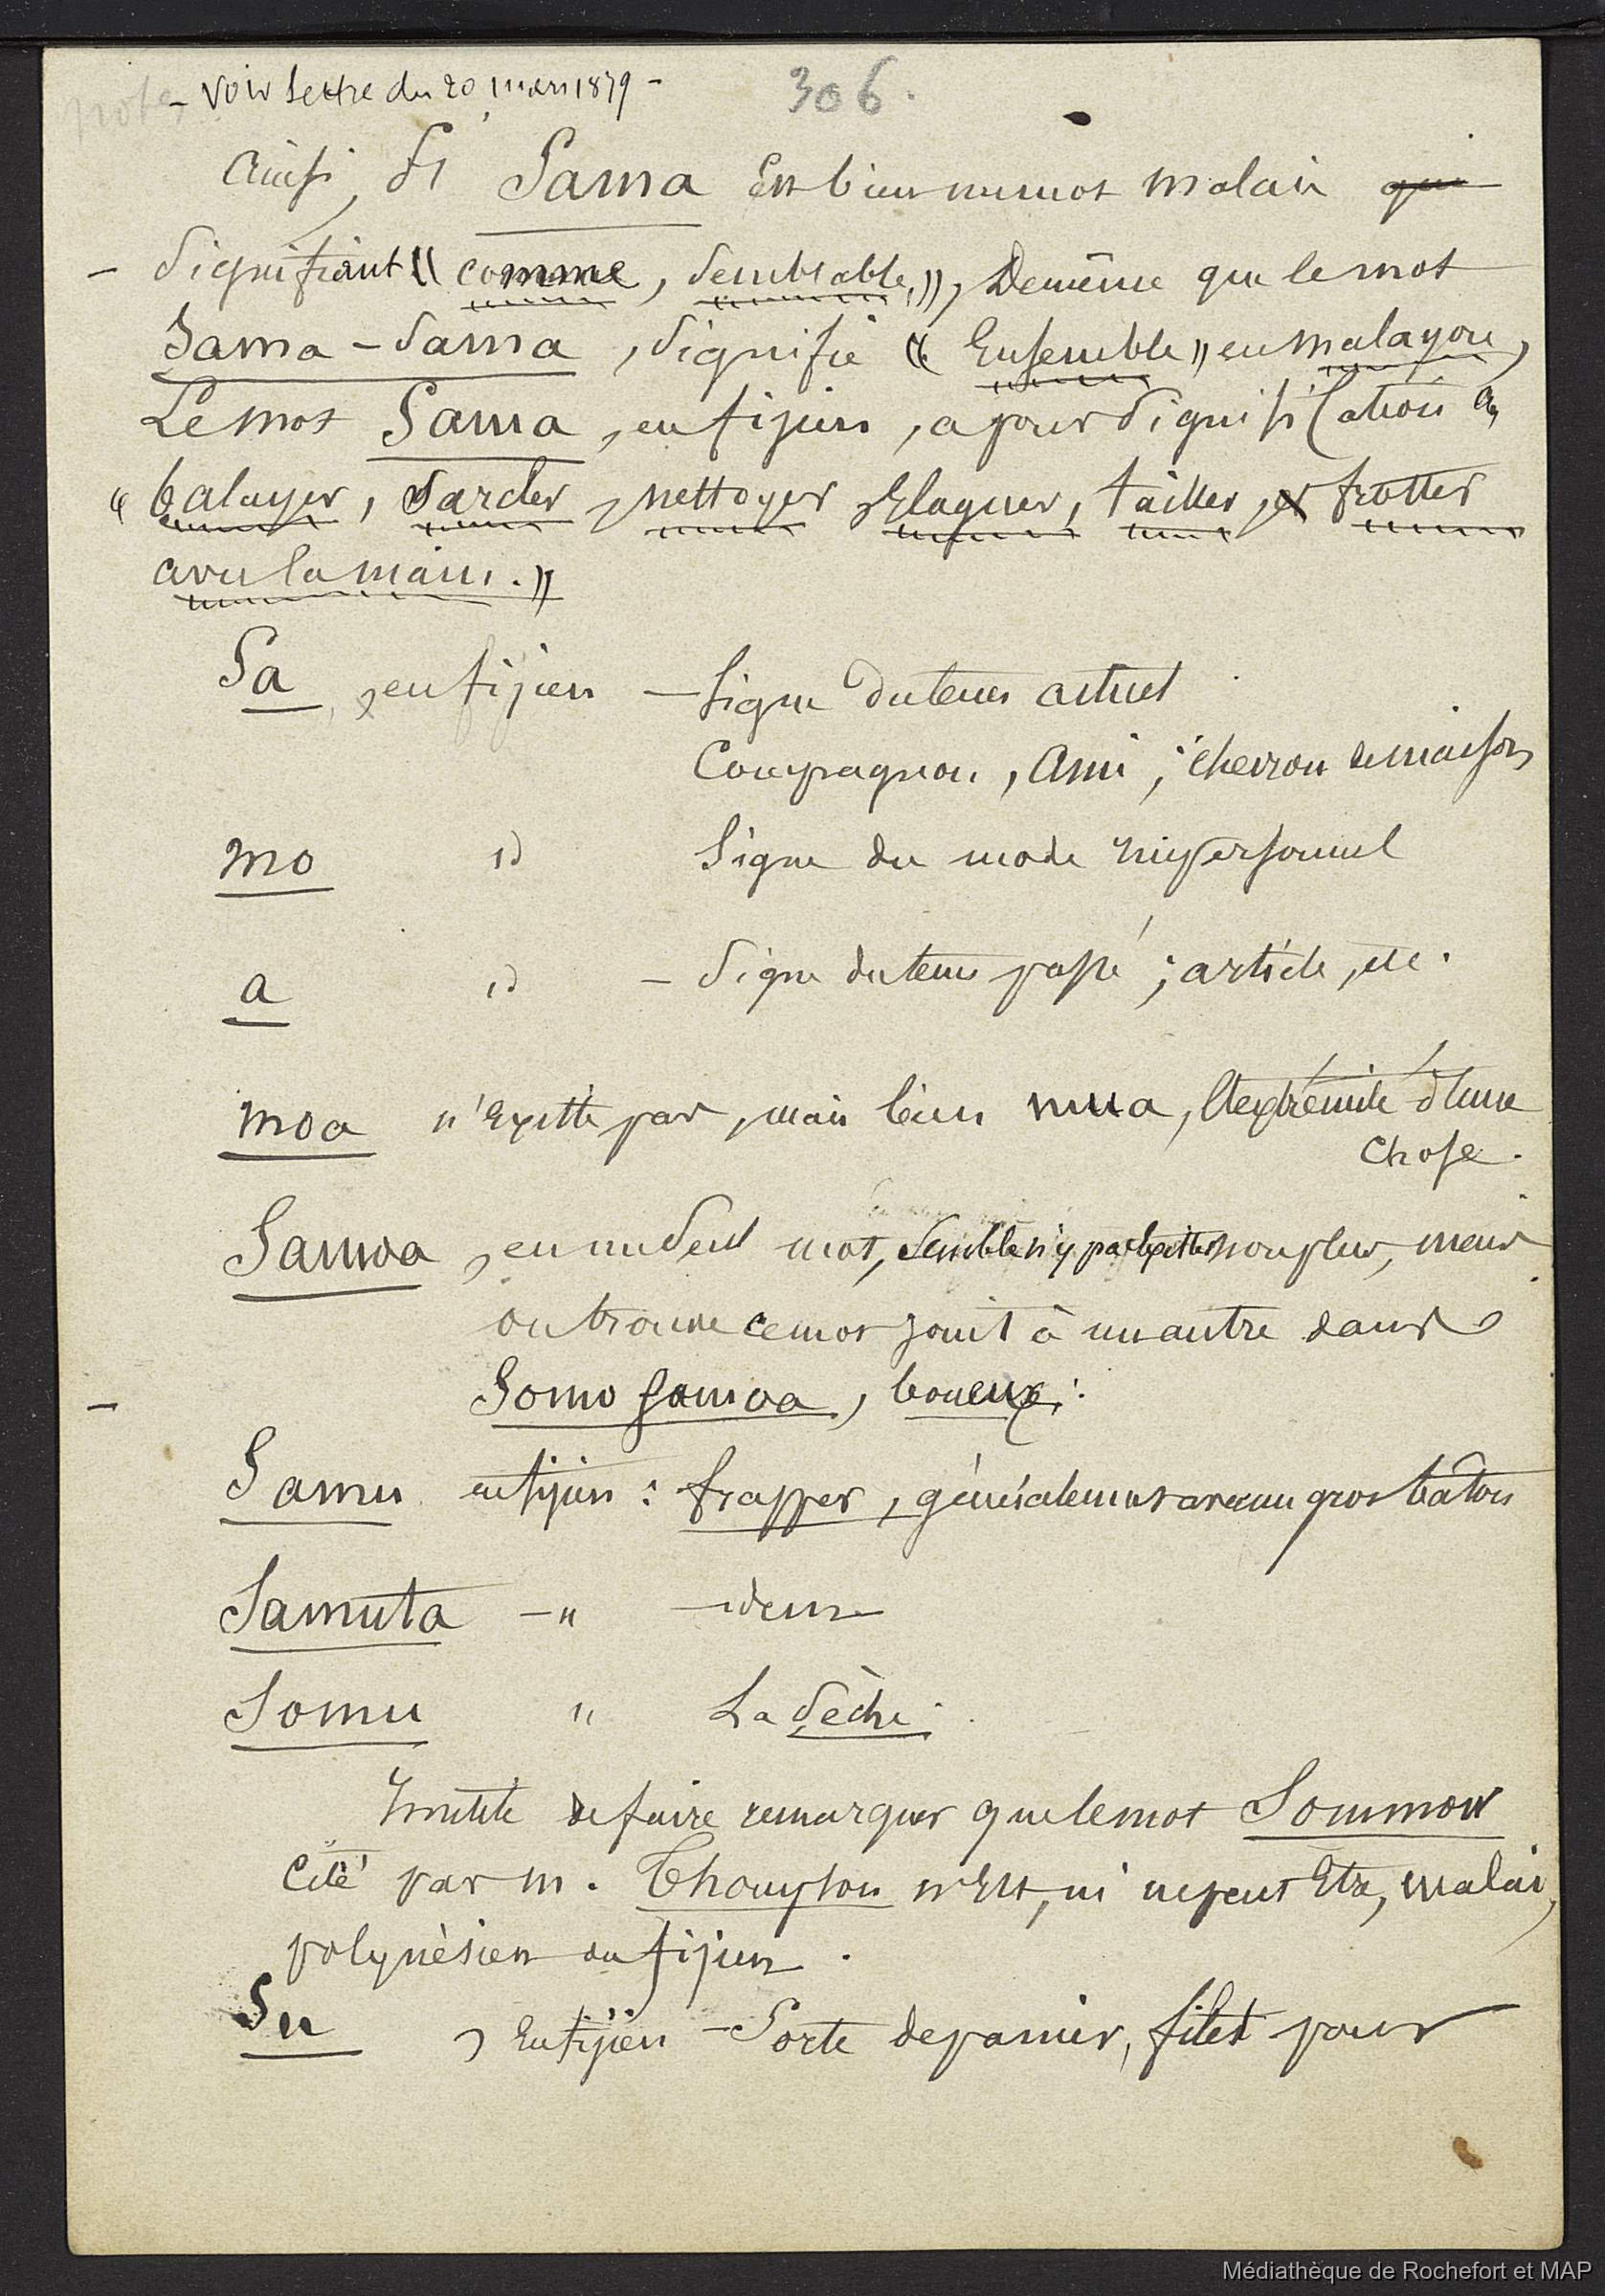 note - Voir Lettre du 20 mars 1879 - 306.
Ainsi, si Sama est bien un mot malais qui
- signifiant « comme, semblable, », de même que le mot
Sama-Sama, signifie « Ensemble » en malayou,
Le mot Sama, en fijien, a pour signification
« balayer, sarcler, nettoyer, Elaguer, tailler, et frotter
avec la main. »
Sa, en fijien - Signe du tems actuel
Compagnon, Ami; chevron de maison
mo id Signe du mode impersonnel
a id - Signe du tems passé; article, etc.
moa n'Existe pas, mais bien mua, l'extrémité d'une
chose.
Samoa, en un seul mot, semble n'y pas exister non plus, mais
on trouve ce mot joint à un autre dans
- Somo samoa, boueux.
Samu en fijien: frapper, généralement avec un gros bâton
Samuta - " idem
Somu " La Sèche.
Inutile de faire remarquer que le mot Sommou
Cité par M. Thompson n'Est, ni ne peut Etre, malais,
polynésien ou fijien.
Su, En fijien - Sorte de panier, filet pour
Médiathèque de Rochefort et MAP